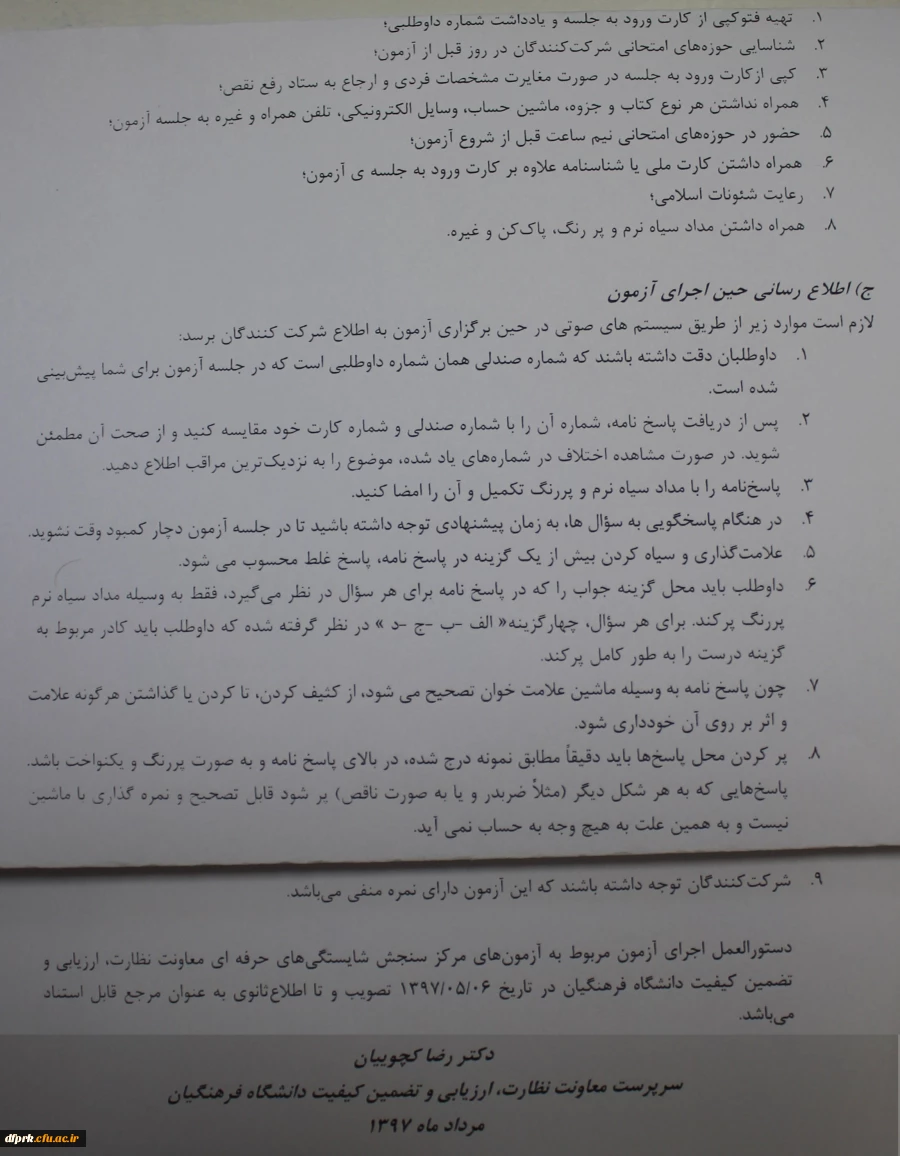 ۱. تهیه فتوکپی از کارت ورود به جلسه و یادداشت شماره داوطلبی؛
۲. شناسایی حوزه‌های امتحانی شرکت‌کنندگان در روز قبل از آزمون؛
۳. کپی ازکارت ورود به جلسه در صورت مغایرت مشخصات فردی و ارجاع به ستاد رفع نقص؛
۴. همراه نداشتن هر نوع کتاب و جزوه، ماشین حساب، وسایل الکترونیکی، تلفن همراه و غیره به جلسه آزمون؛
۵. حضور در حوزه‌های امتحانی نیم ساعت قبل از شروع آزمون؛
۶. همراه داشتن کارت ملی یا شناسنامه علاوه بر کارت ورود به جلسه ی آزمون؛
۷. رعایت شئونات اسلامی؛
۸. همراه داشتن مداد سیاه نرم و پر رنگ، پاک‌کن و غیره.
ج) اطلاع رسانی حین اجرای آزمون
لازم است موارد زیر از طریق سیستم های صوتی در حین برگزاری آزمون به اطلاع شرکت کنندگان برسد:
۱. داوطلبان دقت داشته باشند که شماره صندلی همان شماره داوطلبی است که در جلسه آزمون برای شما پیش‌بینی
شده است.
۲. پس از دریافت پاسخ نامه، شماره آن را با شماره صندلی و شماره کارت خود مقایسه کنید و از صحت آن مطمئن
شوید. در صورت مشاهده اختلاف در شماره‌های یاد شده، موضوع را به نزدیک‌ترین مراقب اطلاع دهید.
۳. پاسخ‌نامه را با مداد سیاه نرم و پررنگ تکمیل و آن را امضا کنید.
۴. در هنگام پاسخگویی به سؤال ها، به زمان پیشنهادی توجه داشته باشید تا در جلسه آزمون دچار کمبود وقت نشوید.
۵. علامت‌گذاری و سیاه کردن بیش از یک گزینه در پاسخ نامه، پاسخ غلط محسوب می شود.
۶. داوطلب باید محل گزینه جواب را که در پاسخ نامه برای هر سؤال در نظر می‌گیرد، فقط به وسیله مداد سیاه نرم
پررنگ پرکند. برای هر سؤال، چهارگزینه« الف -ب -ج -د » در نظر گرفته شده که داوطلب باید کادر مربوط به
گزینه درست را به طور کامل پرکند.
۷. چون پاسخ نامه به وسیله ماشین علامت خوان تصحیح می شود، از کثیف کردن، تا کردن یا گذاشتن هرگونه علامت
و اثر بر روی آن خودداری شود.
۸. پر کردن محل پاسخ‌ها باید دقیقاً مطابق نمونه درج شده، در بالای پاسخ نامه و به صورت پررنگ و یکنواخت باشد.
پاسخ‌هایی که به هر شکل دیگر (مثلاً ضربدر و یا به صورت ناقص) پر شود قابل تصحیح و نمره گذاری با ماشین
نیست و به همین علت به هیچ وجه به حساب نمی آید.
۹. شرکت‌کنندگان توجه داشته باشند که این آزمون دارای نمره منفی می‌باشد.
دستورالعمل اجرای آزمون مربوط به آزمون‌های مرکز سنجش شایستگی‌های حرفه ای معاونت نظارت، ارزیابی و
تضمین کیفیت دانشگاه فرهنگیان در تاریخ ۱۳۹۷/۰۵/۰۶ تصویب و تا اطلاع‌ثانوی به عنوان مرجع قابل استناد
می‌باشد.
دکتر رضا کچوییان
سرپرست معاونت نظارت، ارزیابی و تضمین کیفیت دانشگاه فرهنگیان
مرداد ماه ۱۳۹۷
dfprk.cfu.ac.ir